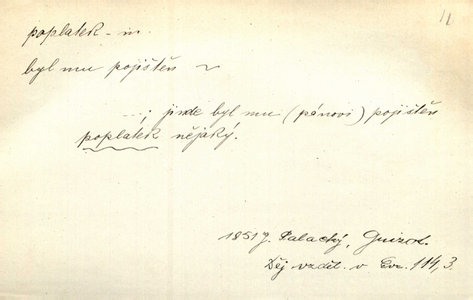 poplatek - m.
byl mu pojištěn ~
...; jinde byl mu (pánovi) pojištěn
poplatek nějaký.
1851 J. Palacký, Guizot.
Děj vzděl. v Evr. 114,3